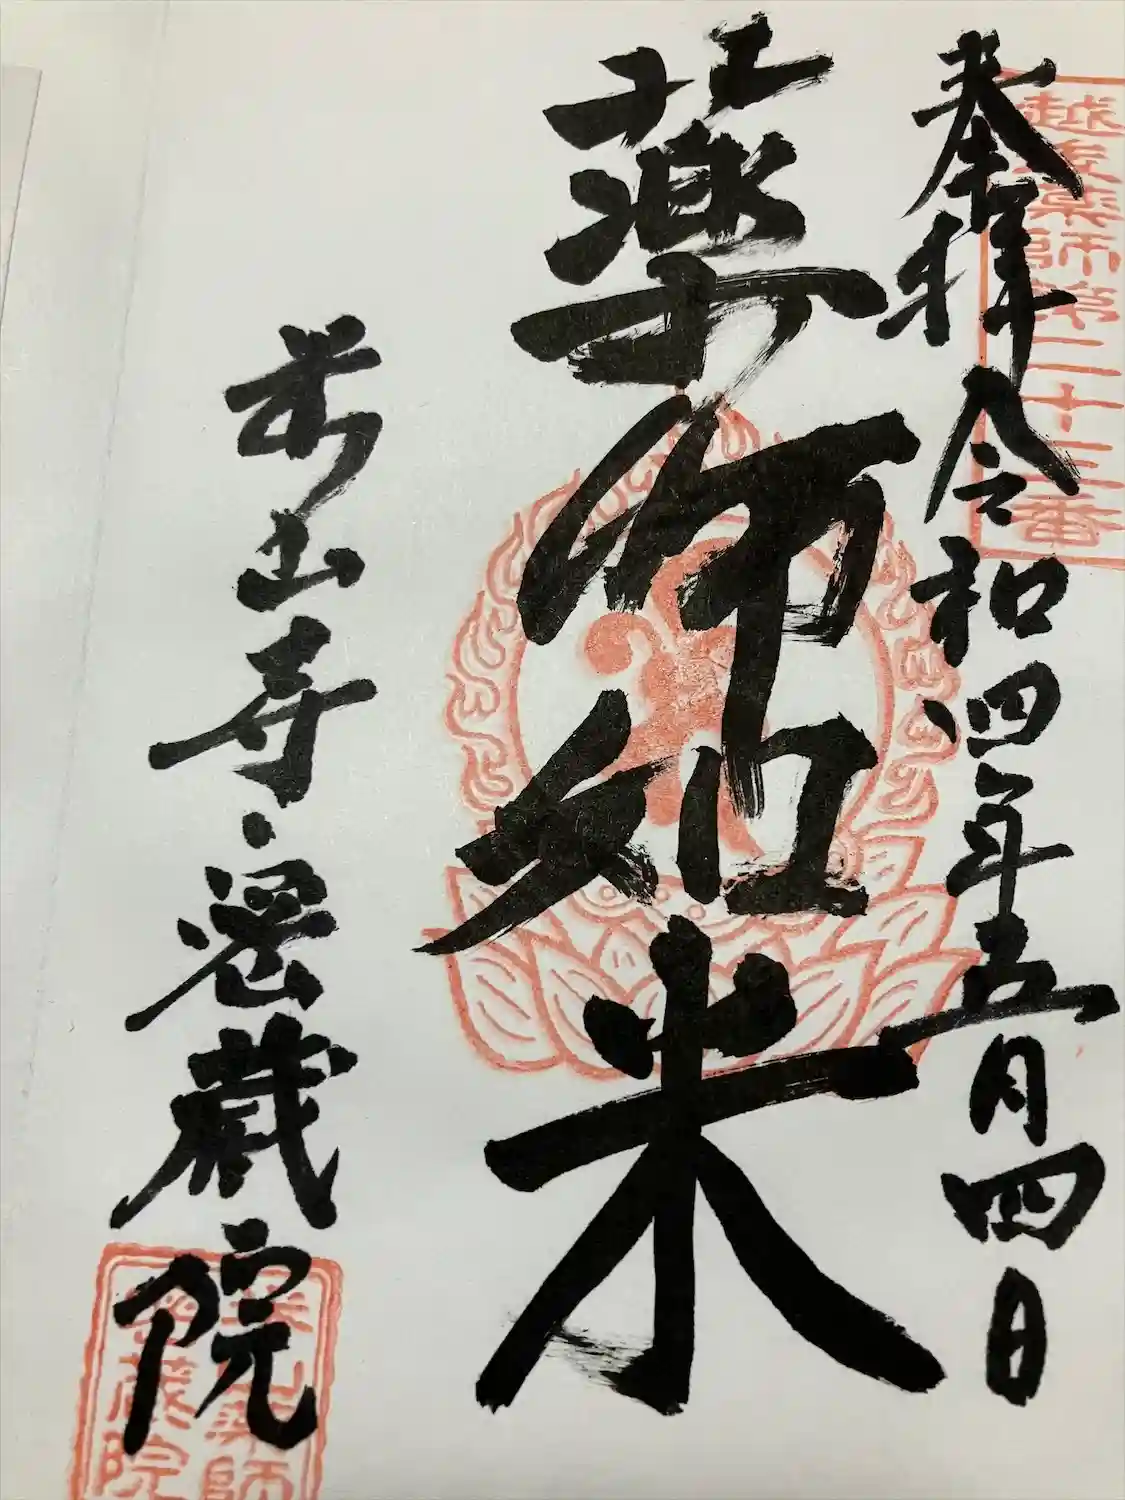 越後薬師第二十三番
奉拝 令和四年五月四日
薬師如来
米山寺 密蔵院
米山薬師
密蔵院